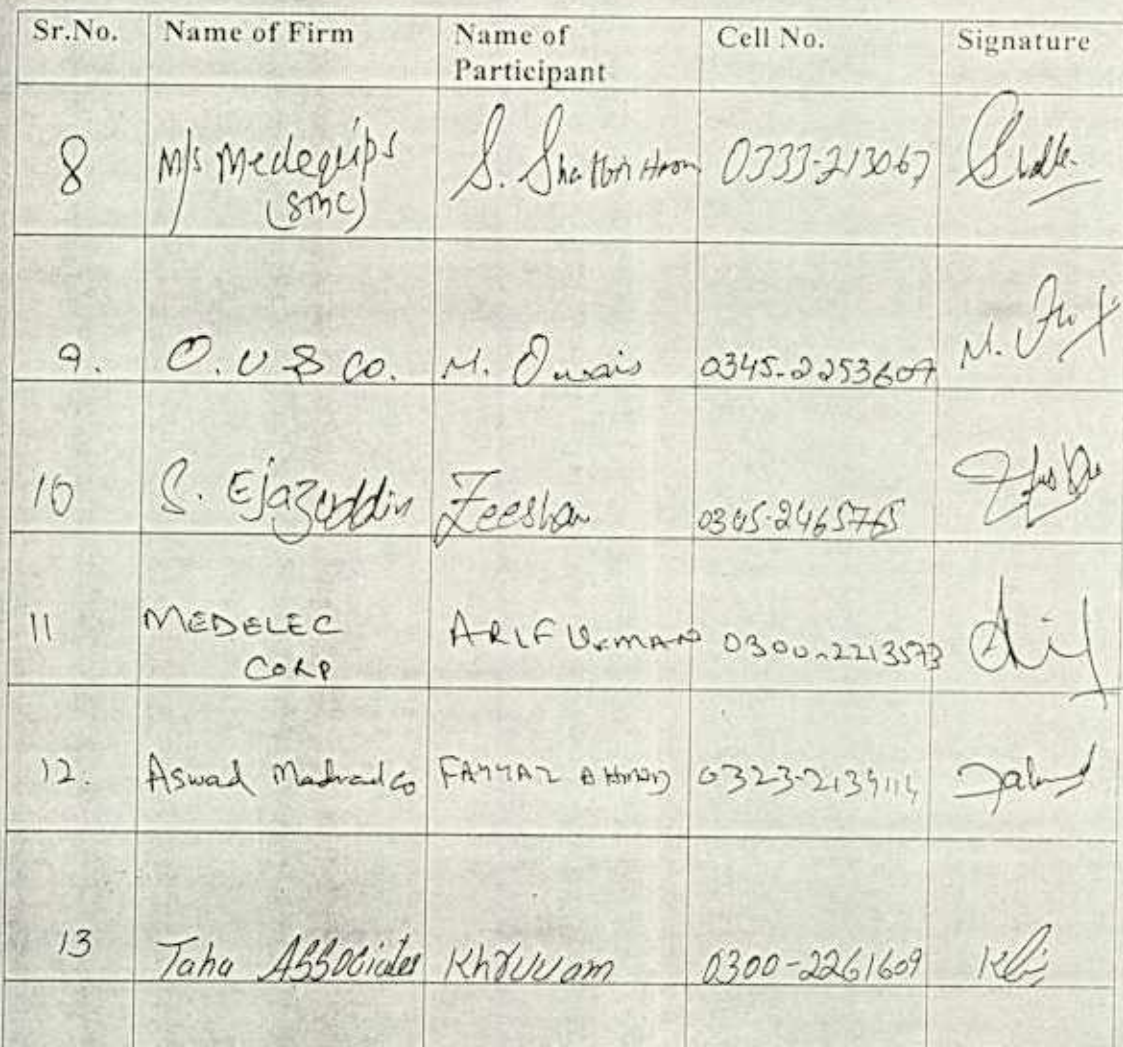 Sr.No. Name of Firm Name of Participant Cell No. Signature
8 M/s Medequips (SMC) S. Shabbir 0333-213067
9. O.U & CO. M. Owais 0345-2253607 M.
10 S. Ejazuddin Zeeshan 0345-2465765
11 MEDELEC CORP ARLF USMAN 0300-2213573 Arif
12. Aswad FAYYAZ AHMED
13 Taha ASSOciates Khruuam 0300-2261609